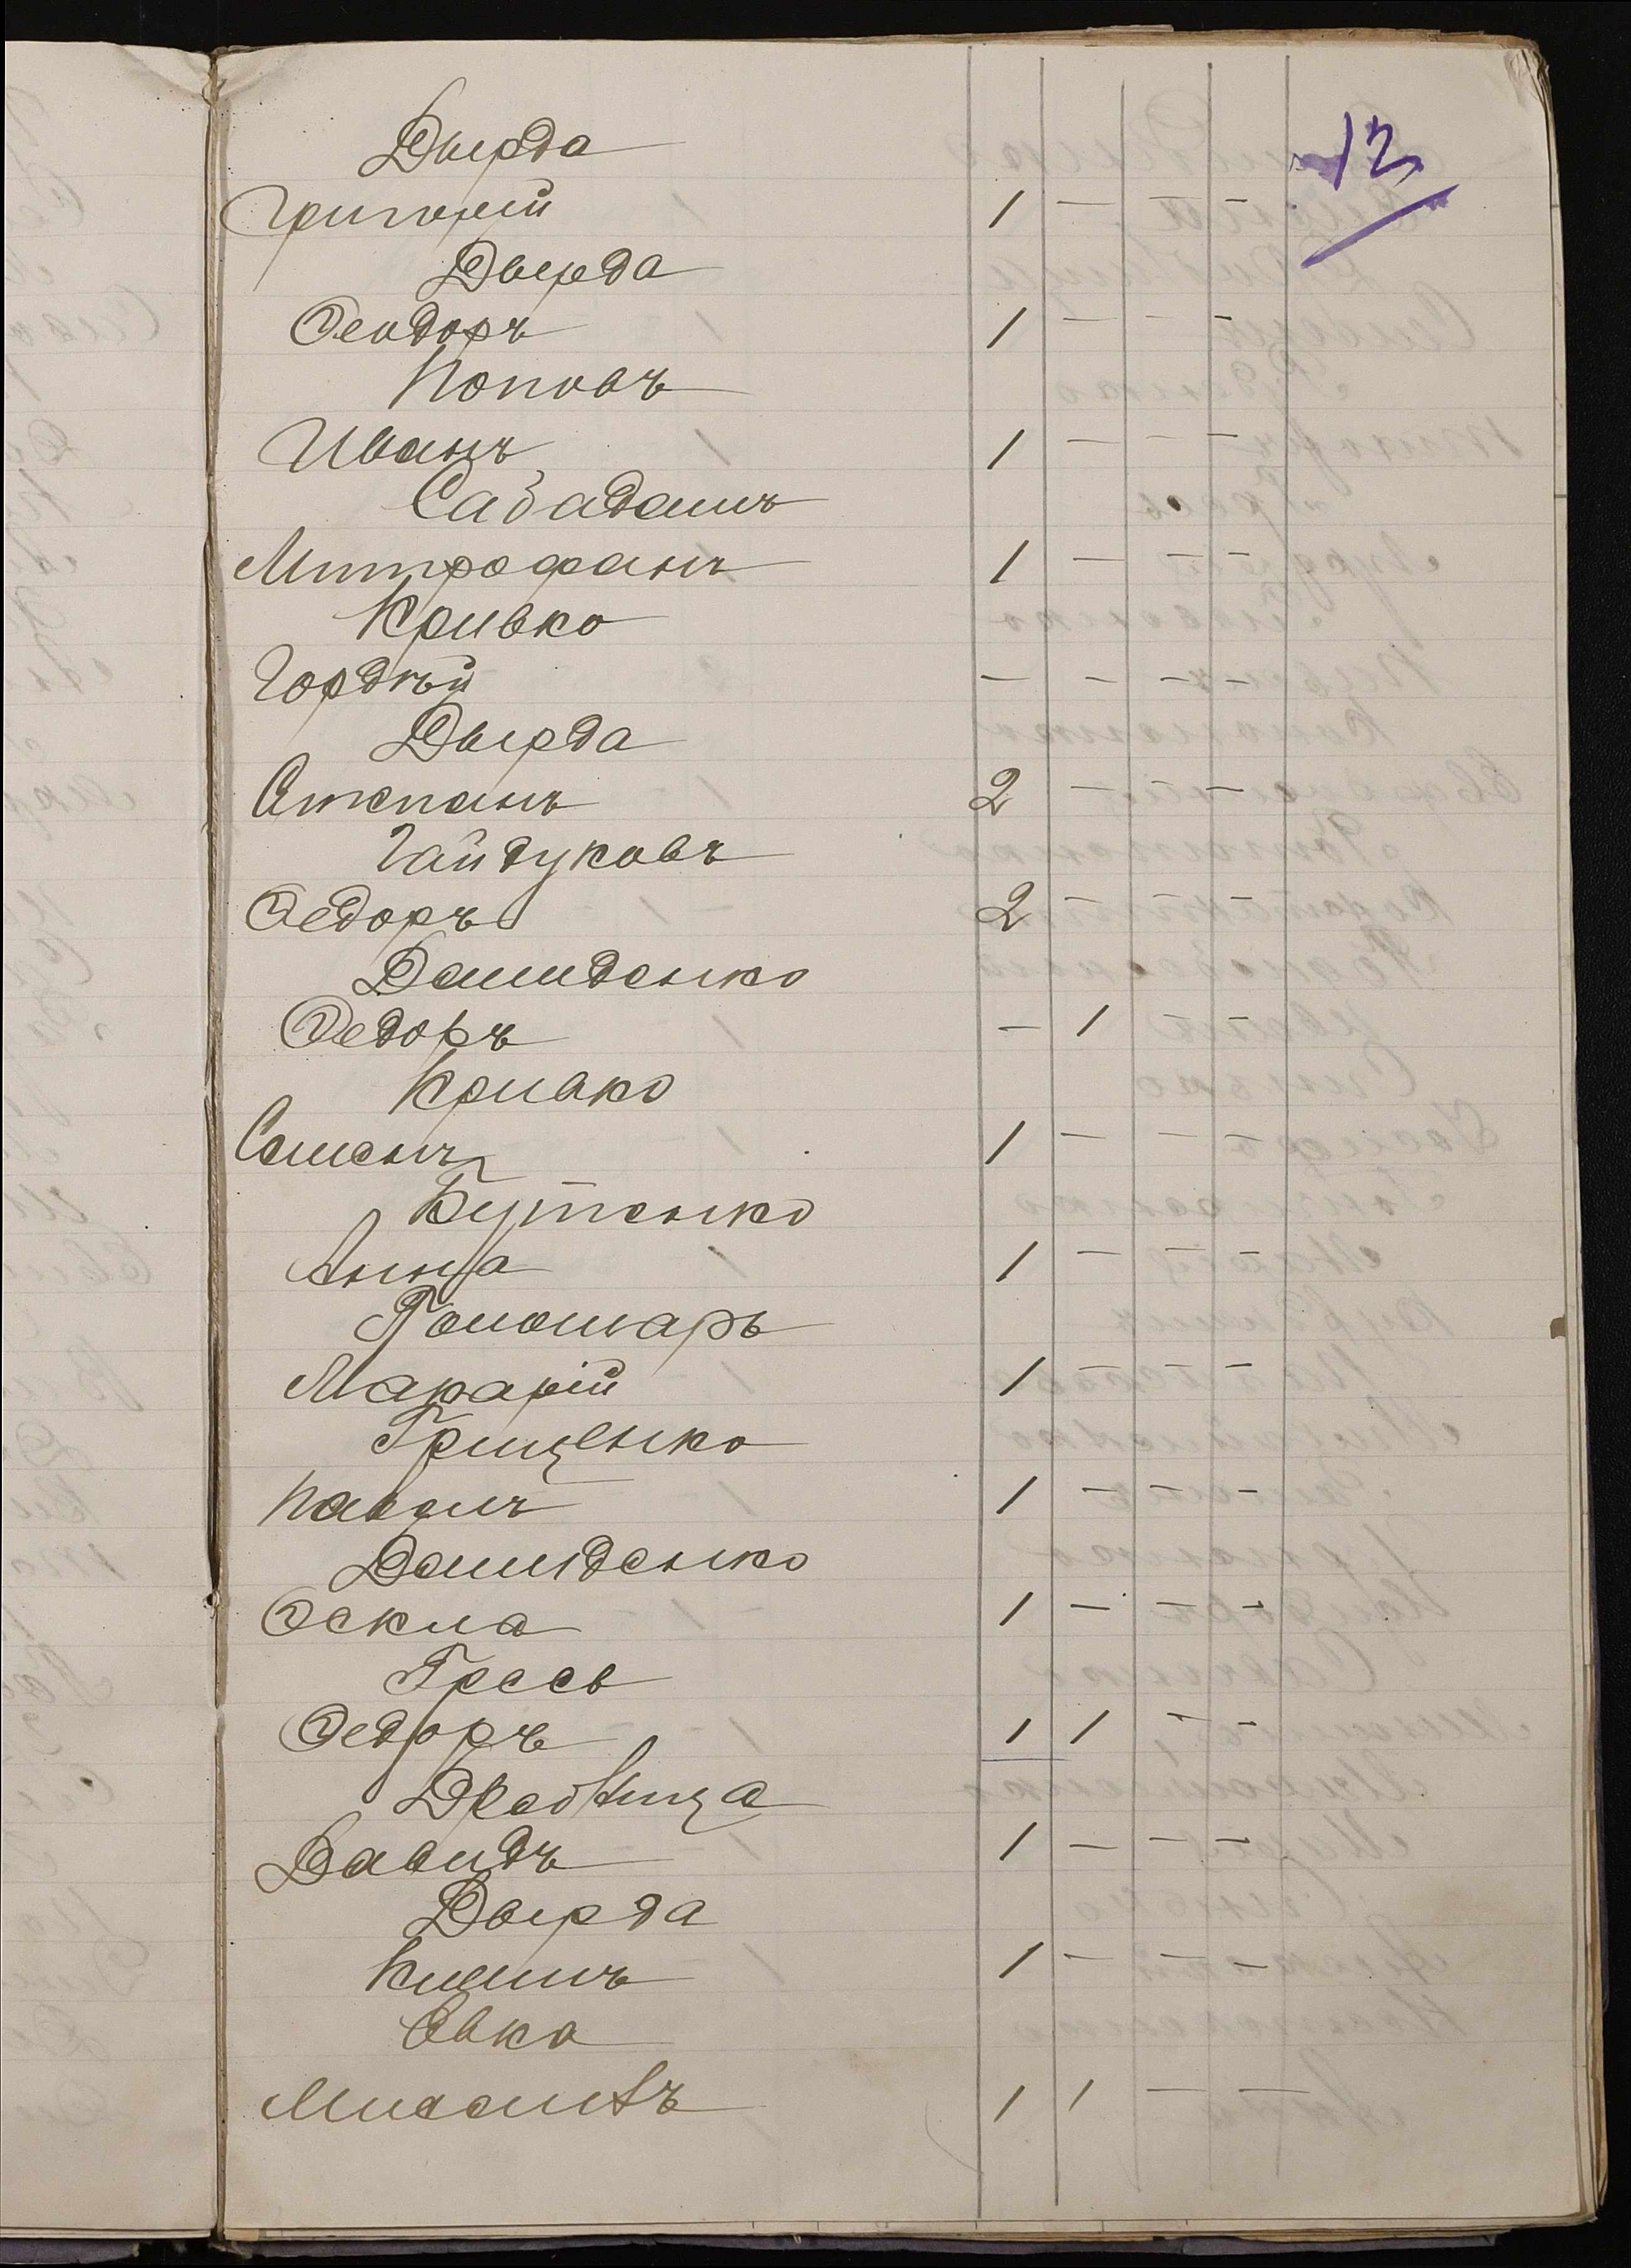 12
Дырда
Григорій 1 — — —
Дырда
Ѳеодоръ 1 — — —
Поповъ
Иванъ 1 — — —
Сабадашъ
Митрофанъ 1 — — —
Кривко
Гордѣй — — — —
Дырда
Степанъ 2 — — —
Гайдуковъ
Ѳедоръ 2 — — —
Демиденко
Ѳедоръ — 1 — —
Кривко
Семенъ 1 — — —
Бутенко
Анна 1 — — —
Пономарь
Макарій 1 — — —
Грищенко
Павелъ 1 — — —
Демиденко
Ѳекла 1 — — —
Гресь
Ѳедоръ 1 1 — —
Дробница
Давидъ 1 — — —
Дырда
Климъ 1 — — —
Евко
Михаилъ 1 1 — —